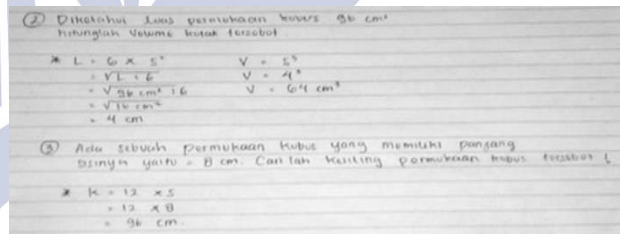 ② Diketahui luas permukaan kubus 96 cm²
hitunglah Volume kotak tersebut
* L = 6 × s²
= √L : 6
= √96 cm² : 6
= √16 cm²
= 4 cm
V = s³
V = 4³
V = 64 cm³
③ Ada sebuah permukaan kubus yang memiliki panjang
sisinya yaitu = 8 cm. Cari lah keliling permukaan kubus tersebut !
* k = 12 × s
= 12 × 8
= 96 cm.